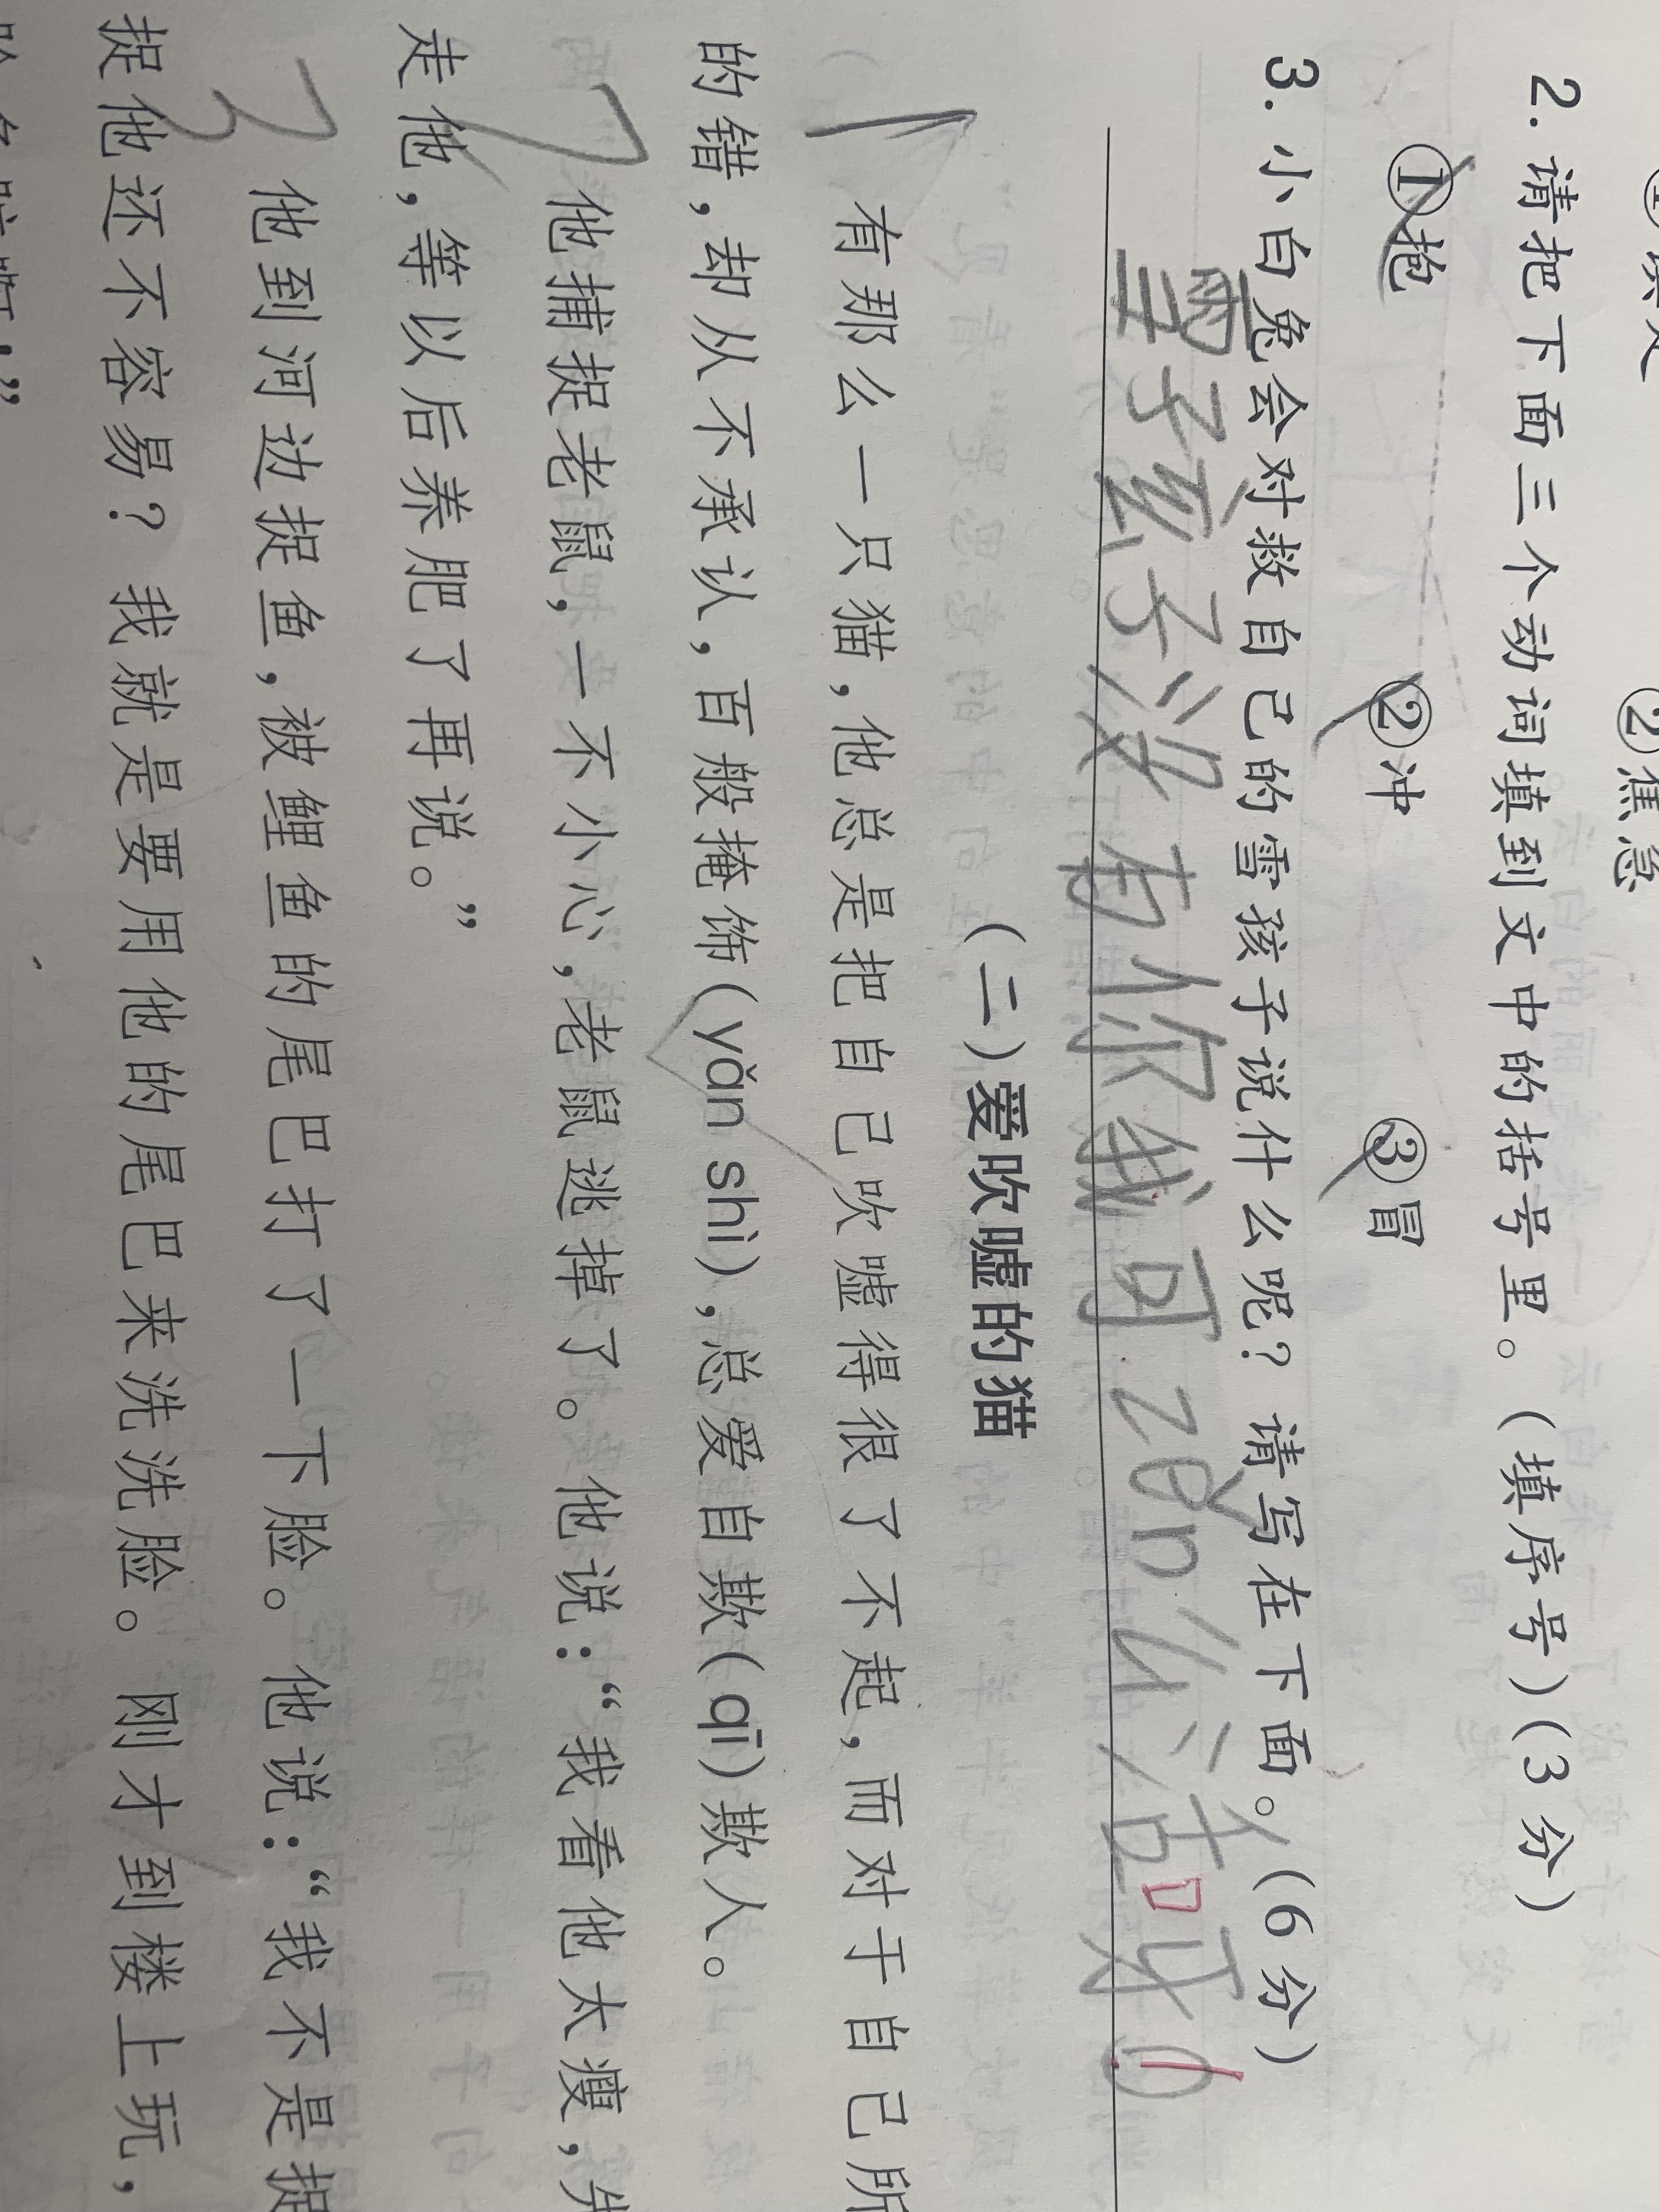 ②焦急
2.请把下面三个动词填到文中的括号里。(填序号)(3分)
①抱 ②冲 ③冒
3.小白兔会对救自己的雪孩子说什么呢?请写在下面。(6分)
雪孩子没有你我可zěn么活呀
(二)爱吹嘘的猫
1 有那么一只猫,他总是把自己吹嘘得很了不起,而对于自己所
的错,却从不承认,百般掩饰(yǎn shì),总爱自欺(qī)欺人。
2 他捕捉老鼠,一不小心,老鼠逃掉了。他说:“我看他太瘦,先
走他,等以后养肥了再说。”
3 他到河边捉鱼,被鲤鱼的尾巴打了一下脸。他说:“我不是捉
捉他还不容易?我就是要用他的尾巴来洗洗脸。刚才到楼上玩,